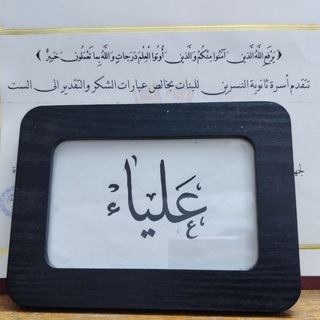 ﴿يَرْفَعِ اللَّهُ الَّذِينَ آمَنُوا مِنْكُمْ وَالَّذِينَ أُوتُوا الْعِلْمَ دَرَجَاتٍ وَاللَّهُ بِمَا تَعْمَلُونَ خَبِيرٌ﴾
تتقدم أسرة ثانوية النسرين للبنات بخالص عبارات الشكر والتقدير الى الست
عَلياءْ